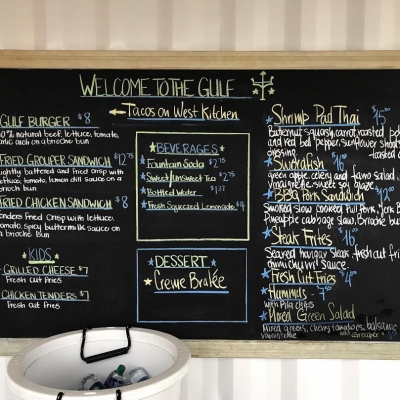 WELCOME TO THE GULF
Tacos on West Kitchen
GULF BURGER $8
natural beef, lettuce, tomato,
on a brioche bun
FRIED GROUPER SANDWICH $12.75
lightly battered and fried crisp with
lettuce, tomato, lemon dill sauce on a
brioch bun
FRIED CHICKEN SANDWICH $8
Tenders fried crisp with lettuce,
Tomato, spicy buttermilk sauce on
a brioche Bun
KIDS
GRILLED CHEESE $7
Fresh Cut Fries
CHICKEN TENDERS $7
Fresh Cut Fries
BEVERAGES
Fountain Soda $2.75
Sweet/Unsweet Tea $2.75
Bottled Water $1.37
Fresh Squeezed Lemonade $4
DESSERT
Creme Bralée
Shrimp Pad Thai $15
Butternut squash, carrot, roasted
and red bell pepper, sunflower shoots
dressing
Swordfish $16
green apple, celery and
Vinaigrette, sweet soy glaze
BBQ Pork Sandwich
Smoked slow cooked Pull Pork, Jerk
Pineapple cabbage slaw, Brioche
Steak Frites $16
Seared hangar steak, fresh cut
chimichurri sauce.
Fresh Cut Fries
Hummus - 7.50
with Pita chips
Mixed Green Salad
Mixed greens, cherry tomatoes, balsamic
vinaigrette